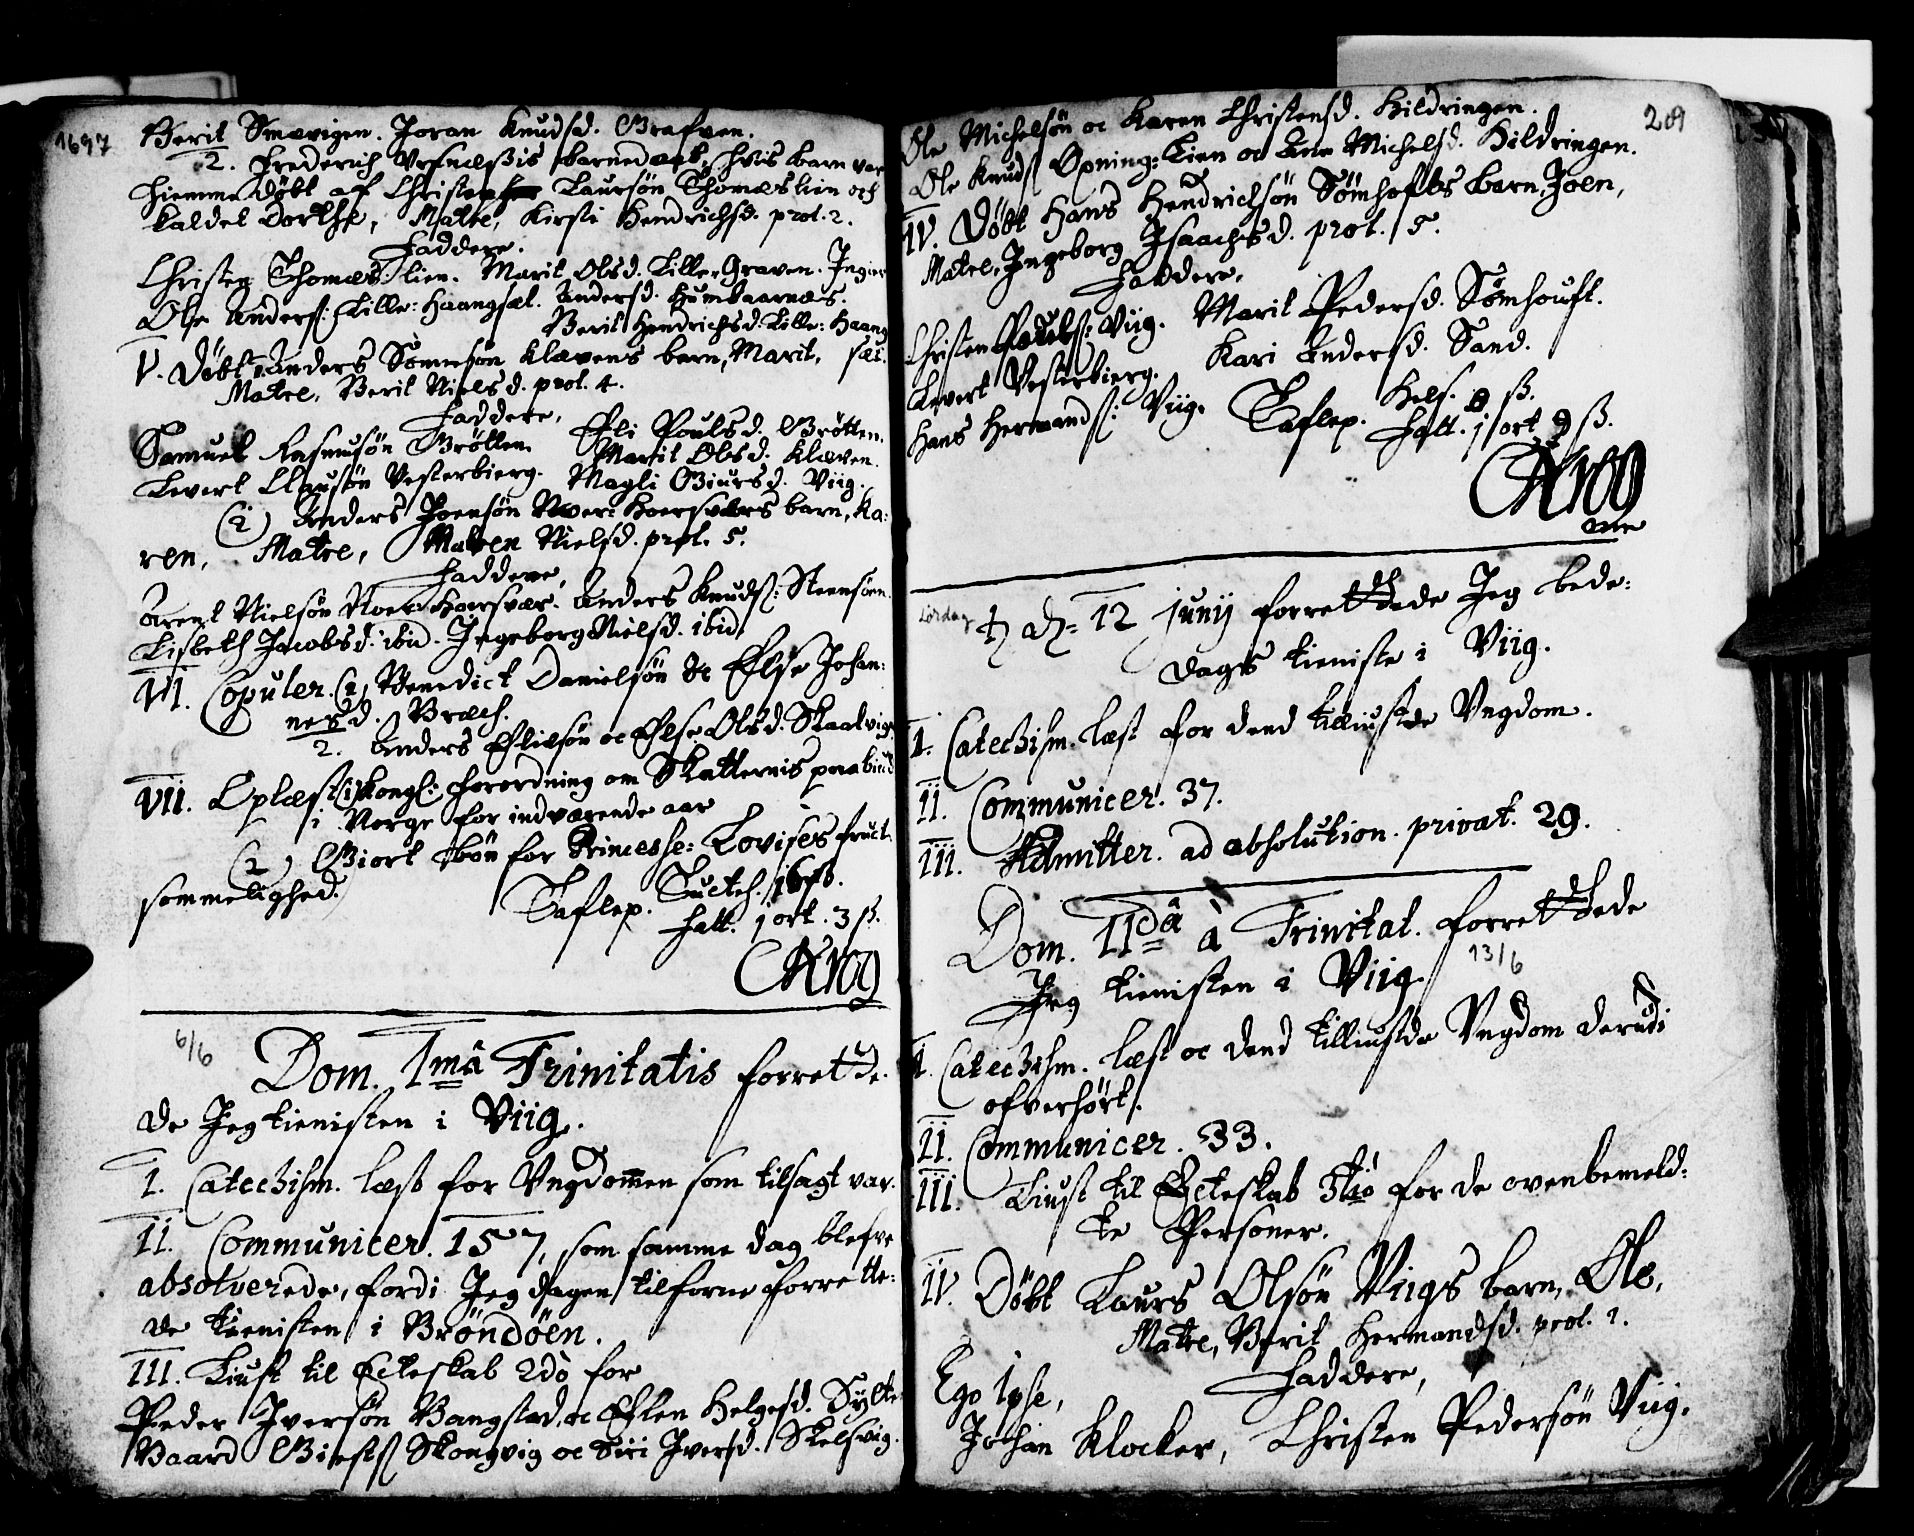 1697
Berit Smævigen. Joran Knudsd. Grafven.
2. Frederich Ursnæssis barnedaab, hvis barn var
hiemmedöbt af Christen Laursön Thomæslien och
kaldet Dorthe, Matre, Kirsti Hendrichsd. prol. 2.
Faddere.
Christen Thomæs: lien. Marit Olsd. Lille-Graven. Ingier
Ole Anders: Lille: Haangsæt. Andersd. Humbaarnæs.
Berit Hendrichsd. Lille: Haang
V. Döbt 1. Anders Sörensön Klævens barn, Marit, sæt.
Matre, Berit Nielsd. prol. 4.
Faddere,
Samuel Rasmusön Gröttem Efli Poulsd. Grötten.
Marit Olsd. Klæven.
Levert Clausön Vesterbierg. Magli Giursd. Viig.
(2) Anders Joensön Noer: Hoersværs barn, Ka:
ren, Matre, Maren Nielsd. prol. 5.
Faddere,
Arent Nielsön Noer: Hoersvær. Anders Knuds: Steensören
Lisbeth Jacobsd. ibid. Ingeborg Nielsd. ibid.
VI. Copuler. (1) Benedict Danielsön oc Else Johan:
nesd. Bræch.
2. Anders Eflilsön oc Else Olsd. Skaalvig
VII. Oplæst (1) Kongl: forordning om Skatternis paabiud
i Norge for indværende aar
(2) Giort bön for Princesse: Lovises fruct:
sommelighed.
Taflep. Suctes. 16 ß.
Fatt. 1 ort. 3 ß.
CKrog
6/6
Dom. 1mâ Trinitatis forrette
de Jeg tienisten i Viig.
I. Catechism. læst for Ungdommen som tilsagt var.
II. Communicer. 157, som samme dag blefve
absolverede, fordi Jeg dagen tilforne forrette:
de tienisten i Bröndöen.
III. Liust til Ecteskab 2dò for
Peder Iversön Bangstad oc Eflen Helgesd. Sylte
Baard Giests Skongvig oc Siri Iversd. Skelsvig.
209
Ole Michelsön oc Karen Christensd. Hildringen.
Ole Knuds Opning: Lien oc Ane Michelsd. Hildringen.
IV. Döbt Hans Hendrichsön Sömhofts barn, Joen,
Matre, Ingeborg Isaachsd. prol. 5.
Faddere,
Christen Pouls: Viig. Marit Pedersd. Sömhouft.
Levert Vesterbierg. Kari Andersd. Sand.
Hans Hermands: Viig. Taflep. Hels. 9 ß.
Fatt. 1 ort 9 ß.
CKrog
Lördag
ħ d: 12 Junij forrettede Jeg bede:
dags tieniste i Viig.
I. Catechism. læst for dend tilliustde Ungdom.
II. Communicer. 37.
III. Admitter. ad absolution. privat. 29.
Dom. IIdâ à Trinitat. forrettede
13/6
Jeg tienisten i Viig
I. Catechism. læst oc dend tilliustde Ungdom derudi
ofverhört.
II. Communicer. 33.
III. Liust til Ecteskab 3tiò for de ovenbemeld:
te Personer.
IV. Döbt Laurs Olsön Viigs barn, Ole,
Matre, Berit Hermandsd. prol. 1.
Faddere,
Ego Ipse,
Johan Klocker, Christen Pedersön Viig.